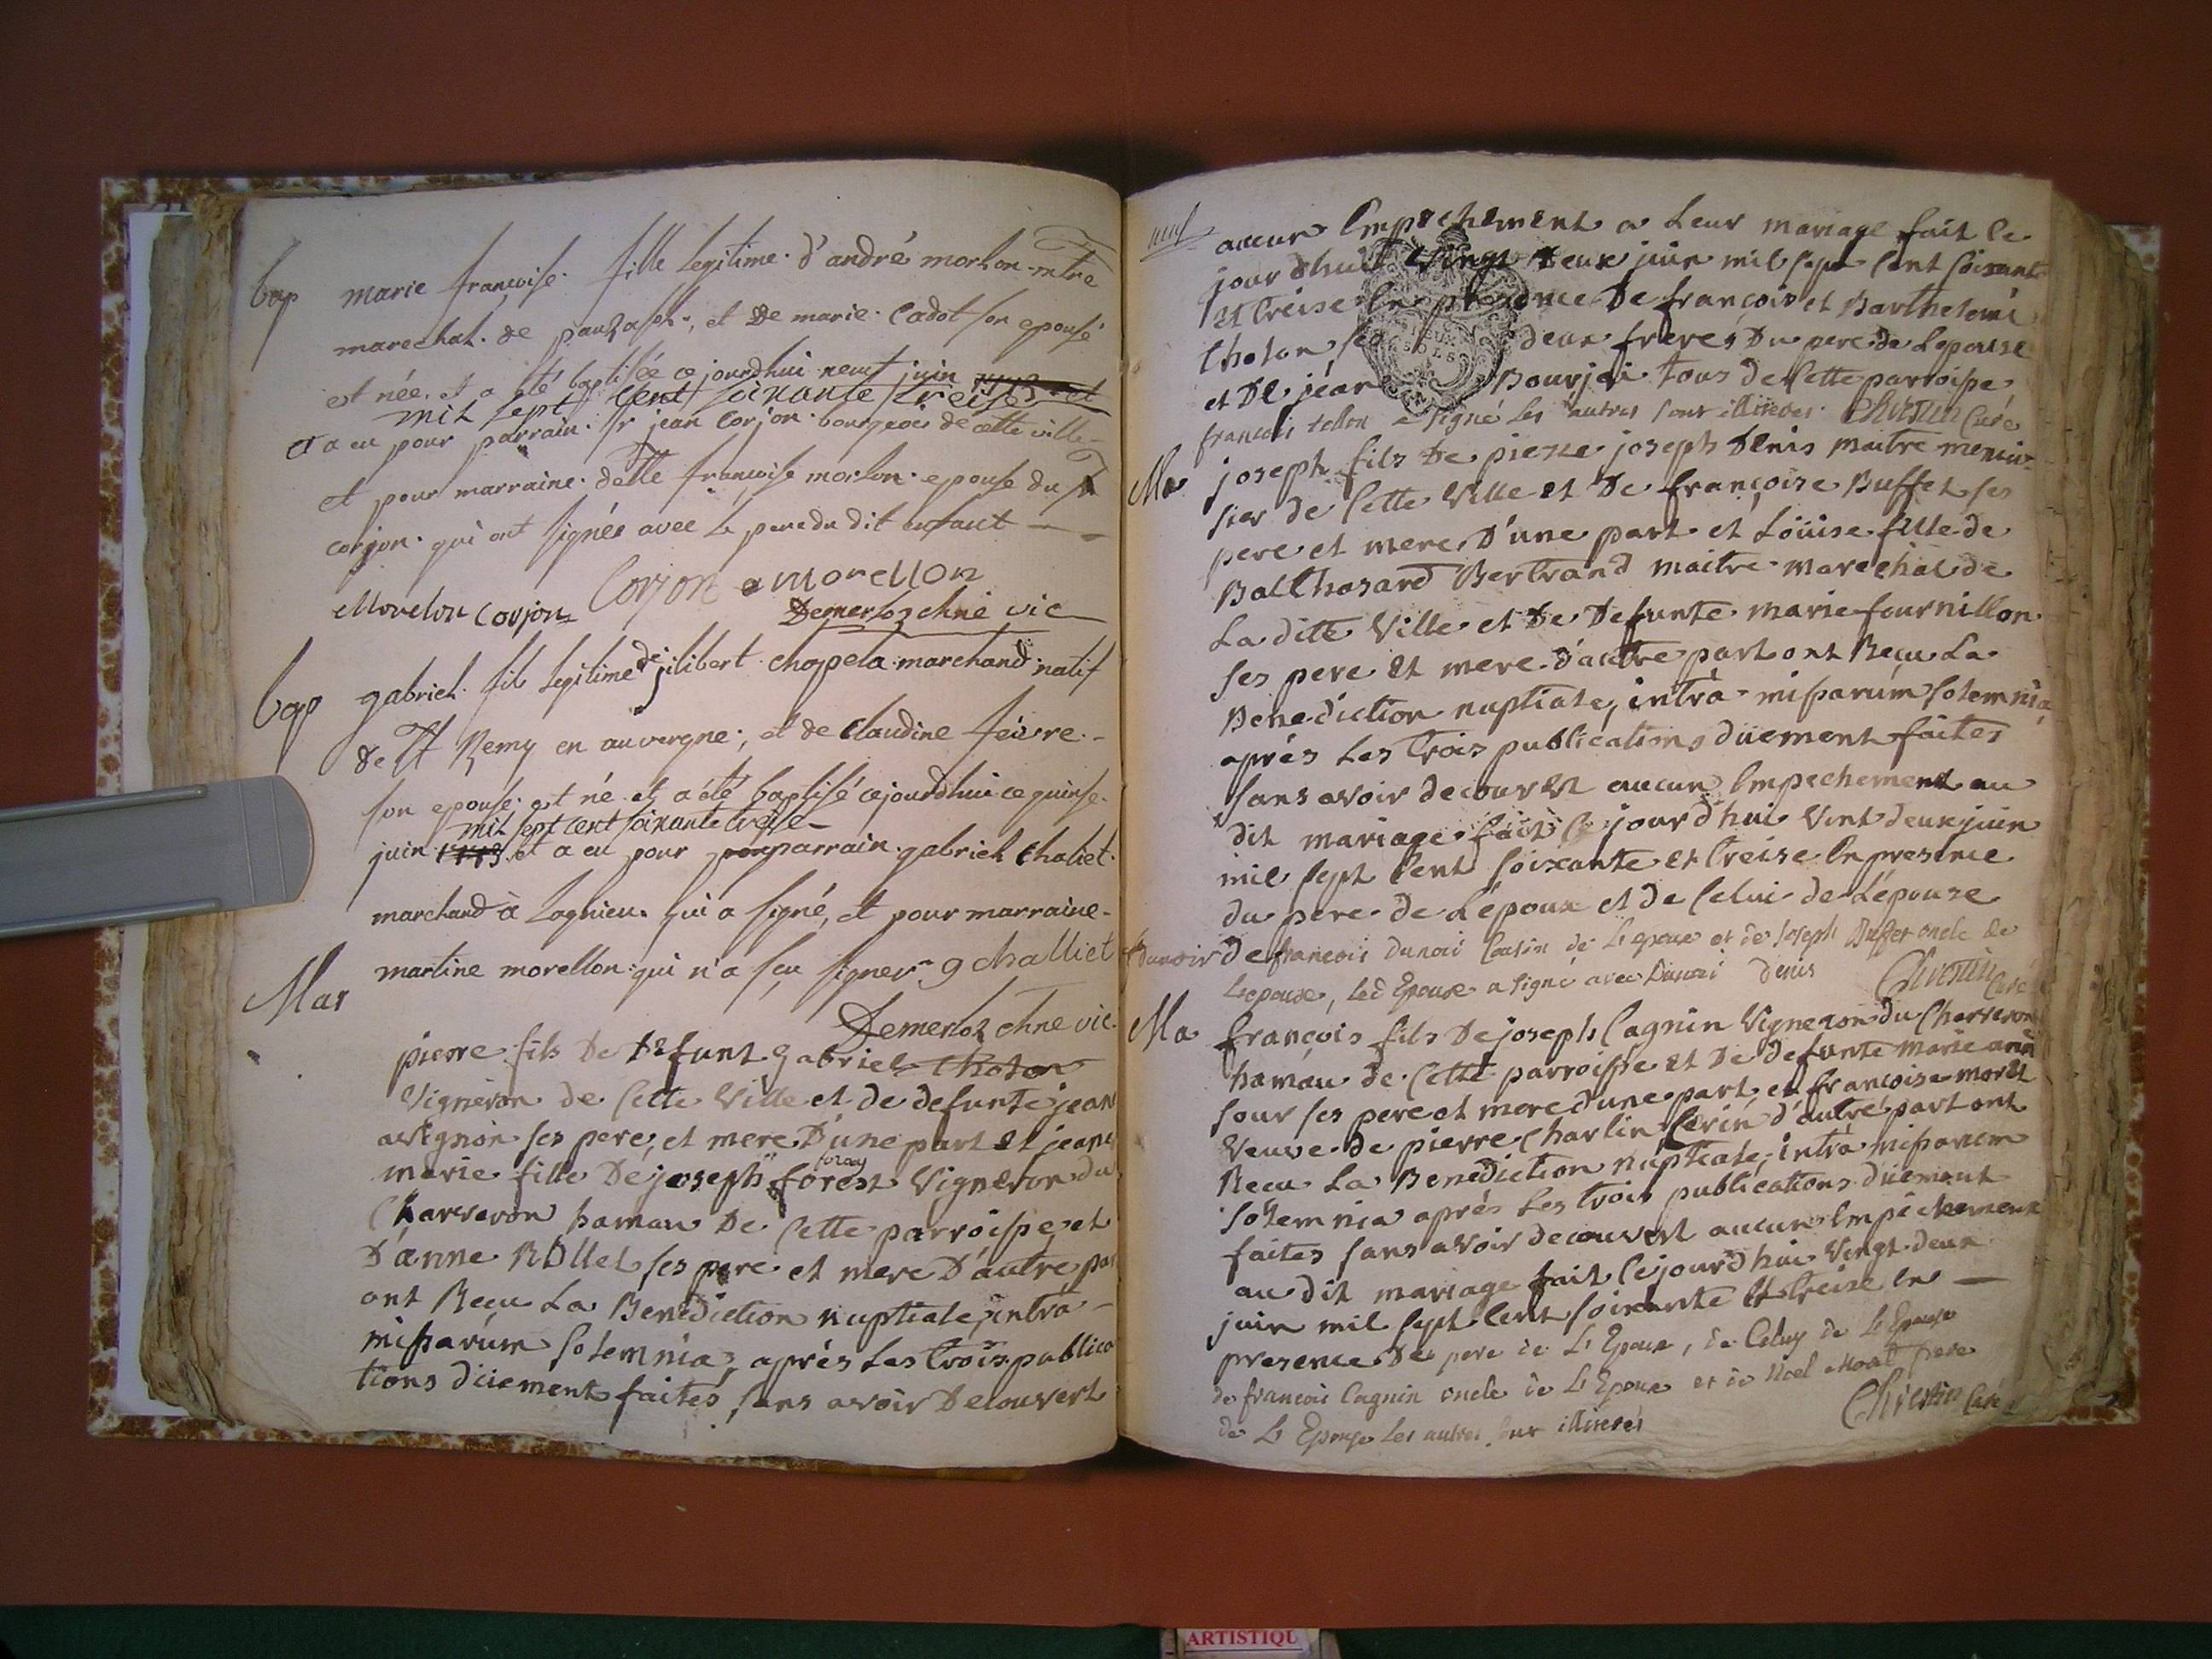 bap marie francoise fille legitime d'andré morlon mtre
marechal de , et de marie Cadot son epouse
est née et a été baptisée ce jourdhui neuf juin 1773 et
mil sept Cent soixante treise
a eu pour parrain sr jean Corjon bourgeois de cette ville
et pour marraine delle francoise morlon epouse du sr
corjon qui ont signés avec le pere du dit enfant
Corjon Morellon
Morelon Corjon Demerloz chne vic
bap gabriel fils legitime de jilibert chapela marchand natif
de St Remy en auvergne, et de Claudine feivre
son epouse est né et a été baptisé cejourdhui ce quinse
mil sept cent soixante treise
juin 1773 et a eu pour parrain gabriel Chaliet
marchand à Lagnieu qui a signé, et pour marraine
martine morellon qui n'a sçu signer g challiet
Demerloz chne vic
Mar
pierre fils de defunt gabriel Tholon
Vigneron de Cette Ville et de defunte jean
avignon ses pere, et mere D'une part et jeane
foray
marie fille De joseph forest Vigneron du
Charveron hamau De Cette parroisse et
D'anne ROllet ses pere et mere D'autre par
ont Reçu La Benediction nuptiale, intra
missarúm Solemnia, aprés Les trois publica
tions düement faites, sans avoir Decouvert
aucun Empechement a Leur mariage fait Ce
jour dhuit Vingt Deux juin mil sept Cent soixant
et treise En presence De francois et Barthelemi
tholon deux freres Du pere de Lepouse
et De jean Bourjai tous de Cette parroisse
francois tollon a signé les autres sont illiterés Chrestin Curé
Ma joseph fils De pierre joseph Denis maitre menui
sier de Cette Ville et De françoise Buffet ses
pere et mere, D'une part et Loüise fille de
Balthasard Bertrand maitre marechal de
La dite Ville et De Defunte marie fournillon
ses pere et mere d'autre part ont Reçu La
Benediction nuptiale, intrà missarúm solemnia,
aprés Les trois publications düement faites
sans avoir decouvert aucun Empechement au
dit mariage fait Ce jourd'hui Vint deux juin
mil sept Cent soixante et treise En presence
du pere de L'époux et de Celui de L'épouse
Dunoir De francois Dunoi Cousin de L'epoux et de Joseph Buffet oncle de
Lepouse, Led Epoux a signé avec Dunoi Denis Chrestin Curé
Ma François fils De joseph Cagnin Vigneron du Charveron
hamau de Cette parroisse et De defunte Marie ann
sour ses pere et mere d'une part, et françoise morel
Veuve de pierre Charlin Cerin d'autre part ont
Recu La Benediction nuptiale, intrà missarum
solemnia aprés Les trois publications düement
faites sans avoir decouvert aucun Empechement
au dit mariage fait Cejourd'hui Vingt deux
juin mil sept Cent soixante et treise En
presence De pere de L'Epoux, de Celuy de L'Epouse
de francois Cagnin oncle de L'Epoux et de Noel Morel frere
de L'Epouse Les autres sont illiterés Chrestin Curé
ARTISTIQU